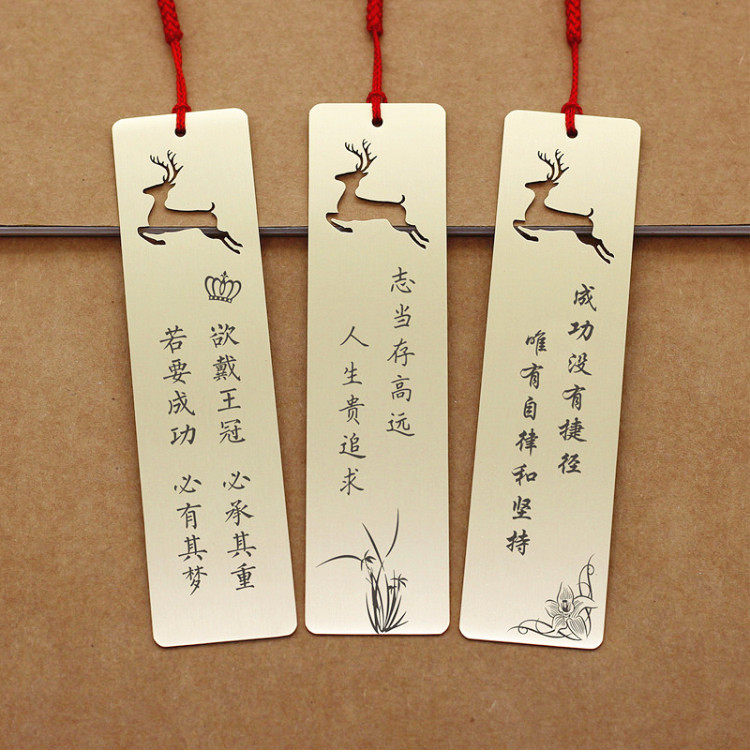 欲戴王冠 必承其重
若要成功 必有其梦
志当存高远
人生贵追求
成功没有捷径
唯有自律和坚持